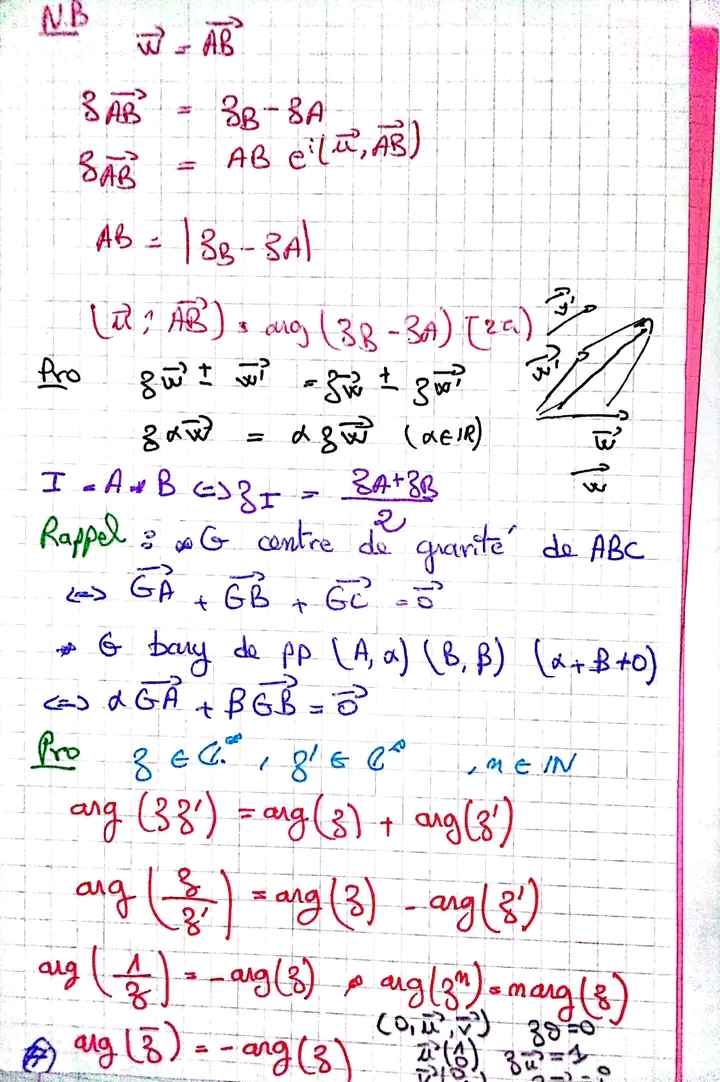 N.B
w⃗ = AB⃗
z AB⃗ = zB - zA
z AB⃗ = AB e^i(u⃗, AB⃗)
AB = |zB - zA|
(u⃗ ; AB⃗) = arg (zB - zA) [2π]
w⃗'
w⃗'
w⃗
w⃗
Pro z w⃗ ± w⃗' = z w⃗ ± z w⃗'
z αw⃗ = α z w⃗ (α ∈ IR)
I = A * B <=> zI = (zA + zB)/2
Rappel : * G centre de gravité de ABC
<=> GA⃗ + GB⃗ + GC⃗ = 0⃗
* G bary de pp (A, α) (B, β) (α + β ≠ 0)
<=> α GA⃗ + β GB⃗ = 0⃗
Pro z ∈ ℂ*, z' ∈ ℂ*, n ∈ IN
arg (zz') = arg(z) + arg(z')
arg (z/z') = arg(z) - arg(z')
arg (1/z) = - arg(z) * arg(z^n) = n arg(z)
arg (z̄) = - arg(z)
(0, u⃗, v⃗) z0 = 0
u⃗ (1 0) z u⃗ = 1